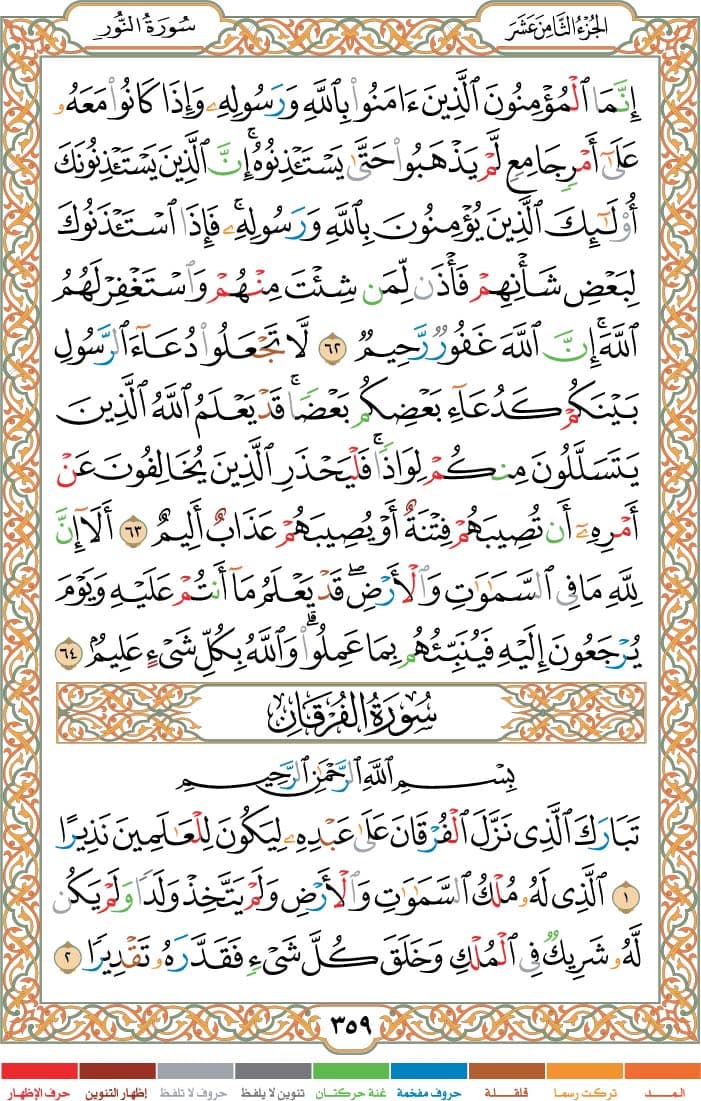 الجزء الثامن عشر
سورة النور
إِنَّمَا ٱلْمُؤْمِنُونَ ٱلَّذِينَ ءَامَنُوا۟ بِٱللَّهِ وَرَسُولِهِۦ وَإِذَا كَانُوا۟ مَعَهُۥ
عَلَىٰٓ أَمْرٍ جَامِعٍ لَّمْ يَذْهَبُوا۟ حَتَّىٰ يَسْتَـْٔذِنُوهُ ۚ إِنَّ ٱلَّذِينَ يَسْتَـْٔذِنُونَكَ
أُو۟لَـٰٓئِكَ ٱلَّذِينَ يُؤْمِنُونَ بِٱللَّهِ وَرَسُولِهِۦ ۚ فَإِذَا ٱسْتَـْٔذَنُوكَ
لِبَعْضِ شَأْنِهِمْ فَأْذَن لِّمَن شِئْتَ مِنْهُمْ وَٱسْتَغْفِرْ لَهُمُ
ٱللَّهَ ۚ إِنَّ ٱللَّهَ غَفُورٌ رَّحِيمٌ ٦٢ لَّا تَجْعَلُوا۟ دُعَآءَ ٱلرَّسُولِ
بَيْنَكُمْ كَدُعَآءِ بَعْضِكُم بَعْضًا ۚ قَدْ يَعْلَمُ ٱللَّهُ ٱلَّذِينَ
يَتَسَلَّلُونَ مِنكُمْ لِوَاذًا ۚ فَلْيَحْذَرِ ٱلَّذِينَ يُخَالِفُونَ عَنْ
أَمْرِهِۦٓ أَن تُصِيبَهُمْ فِتْنَةٌ أَوْ يُصِيبَهُمْ عَذَابٌ أَلِيمٌ ٦٣ أَلَآ إِنَّ
لِلَّهِ مَا فِى ٱلسَّمَـٰوَٰتِ وَٱلْأَرْضِ ۖ قَدْ يَعْلَمُ مَآ أَنتُمْ عَلَيْهِ وَيَوْمَ
يُرْجَعُونَ إِلَيْهِ فَيُنَبِّئُهُم بِمَا عَمِلُوا۟ ۗ وَٱللَّهُ بِكُلِّ شَىْءٍ عَلِيمٌۢ ٦٤
سورة الفرقان
بِسْمِ ٱللَّهِ ٱلرَّحْمَـٰنِ ٱلرَّحِيمِ
تَبَارَكَ ٱلَّذِى نَزَّلَ ٱلْفُرْقَانَ عَلَىٰ عَبْدِهِۦ لِيَكُونَ لِلْعَـٰلَمِينَ نَذِيرًا
١ ٱلَّذِى لَهُۥ مُلْكُ ٱلسَّمَـٰوَٰتِ وَٱلْأَرْضِ وَلَمْ يَتَّخِذْ وَلَدًا وَلَمْ يَكُن
لَّهُۥ شَرِيكٌ فِى ٱلْمُلْكِ وَخَلَقَ كُلَّ شَىْءٍ فَقَدَّرَهُۥ تَقْدِيرًا ٢
٣٥٩
المـــد
تركت رسما
قلقلة
حروف مفخمة
غنة حركتان
تنوين لا يلفظ
حروف لا تلفظ
إظهار التنوين
حرف الإظهار